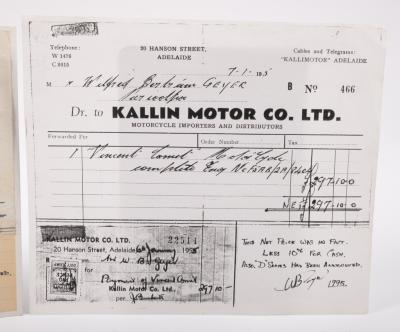 Telephone:
W 1476
C 8015
20 HANSON STREET,
ADELAIDE
Cables and Telegrams:
"KALLIMOTOR" ADELAIDE
7-1-
M Wilfred Bertram GEYER
B No 466
Dr. to KALLIN MOTOR CO. LTD.
MOTORCYCLE IMPORTERS AND DISTRIBUTORS
Forwarded Per
Order Number
Tax
1 Vincent Comet Motor Cycle
complete Eng No
297-10-0
NETT 297-10-0
KALLIN MOTOR CO. LTD. 22511
20 Hanson Street, Adelaide, January 1955
Mr W B Geyer
for
Payment of Vincent Comet
Kallin Motor Co. Ltd.,
per
297-10-
THIS NET PRICE WAS NO FAULT.
LESS 10% FOR CASH.
ALSO "D" SERIES HAS BEEN ANNOUNCED.
1995.